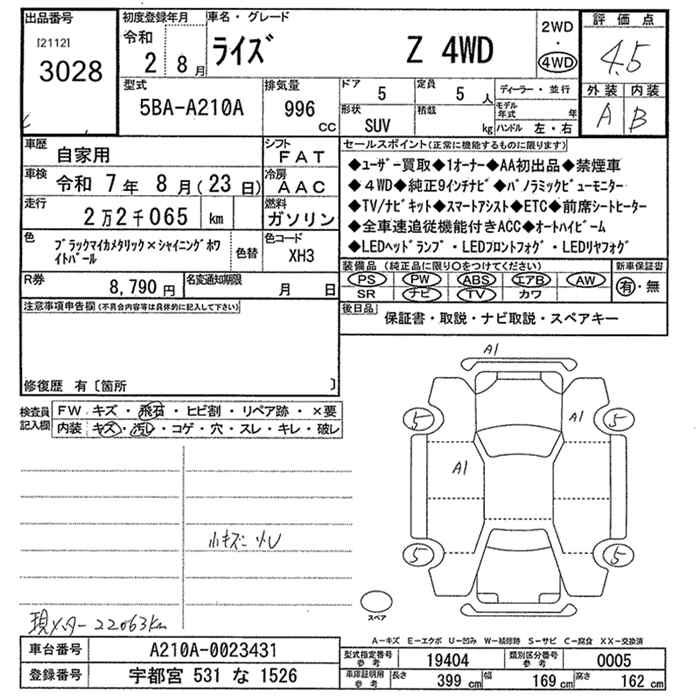 出品番号
[2112]
3028
初度登録年月
令和
2 8月
車名・グレード
ライズ Z 4WD
2WD
・
4WD
評価点
4.5
外装 内装
A B
型式
5BA-A210A
排気量
996
cc
ドア
5
形状
SUV
定員
5 人
積載
kg
ディーラー・並行
モデル年式 年
ハンドル 左・右
車歴
自家用
シフト
FAT
車検
令和 7年 8月(23日)
冷房
AAC
走行
2万2千065 km
燃料
ガソリン
色
ブラックマイカメタリック×シャイニングホワイトパール
色替
色コード
XH3
R券
8,790円
名変通知期限
月 日
セールスポイント(正常に機能するものに限ります)
◆ユーザー買取◆1オーナー◆AA初出品◆禁煙車
◆4WD◆純正9インチナビ◆パノラミックビューモニター
◆TV/ナビキット◆スマートアシスト◆ETC◆前席シートヒーター
◆全車速追従機能付きACC◆オートハイビーム
◆LEDヘッドランプ・LEDフロントフォグ・LEDリヤフォグ
装備品(純正品に限り○をつけてください)
PS PW ABS エアB AW
SR ナビ TV カワ
新車保証書
有・無
後日品
保証書・取説・ナビ取説・スペアキー
注意事項申告欄(不具合内容等は具体的に記入して下さい)
修復歴 有〔箇所 〕
検査員記入欄
FW キズ・飛石・ヒビ割・リペア跡・×要
内装 キズ・汚レ・コゲ・穴・スレ・キレ・破レ
A1
5 A1 5
A1
5 5
スペア
小キズ 小U
現メーター 22063km
A-キズ E-エクボ U-凹み W-補修跡 S-サビ C-腐食 XX-交換済
車台番号
A210A-0023431
登録番号
宇都宮 531 な 1526
型式指定番号
参考
19404
類別区分番号
参考
0005
車庫証明用
参考
長さ 399 cm 幅 169 cm 高さ 162 cm